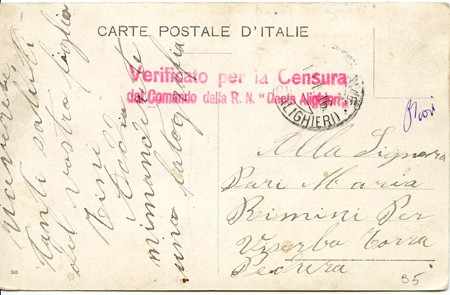 CARTE POSTALE D'ITALIE
Verificato per la Censura
dal Comando della R. N. "Dante Alighieri"
ALIGHIERI
Tanti saluti
dal vostro figlio
Pari
mimandate
una fatografia
Alla Signora
Pari Maria
Rimini Per
Viserba Torra
Pedrera
35